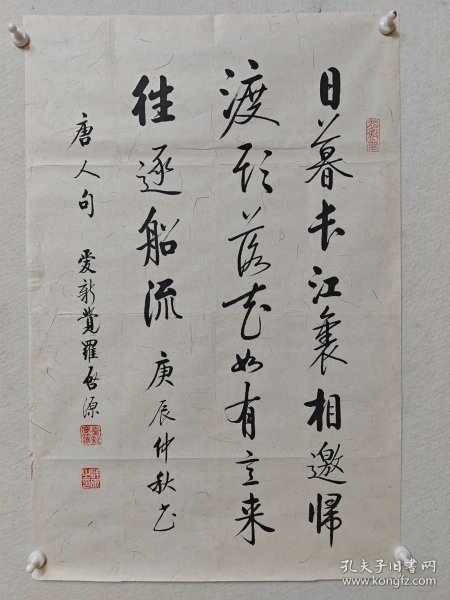 日暮长江裏相邀帰
渡头落花如有意来
往逐船流 庚辰仲秋书
唐人句 爱新觉羅启源
孔夫子旧书网
www.kongfz.com